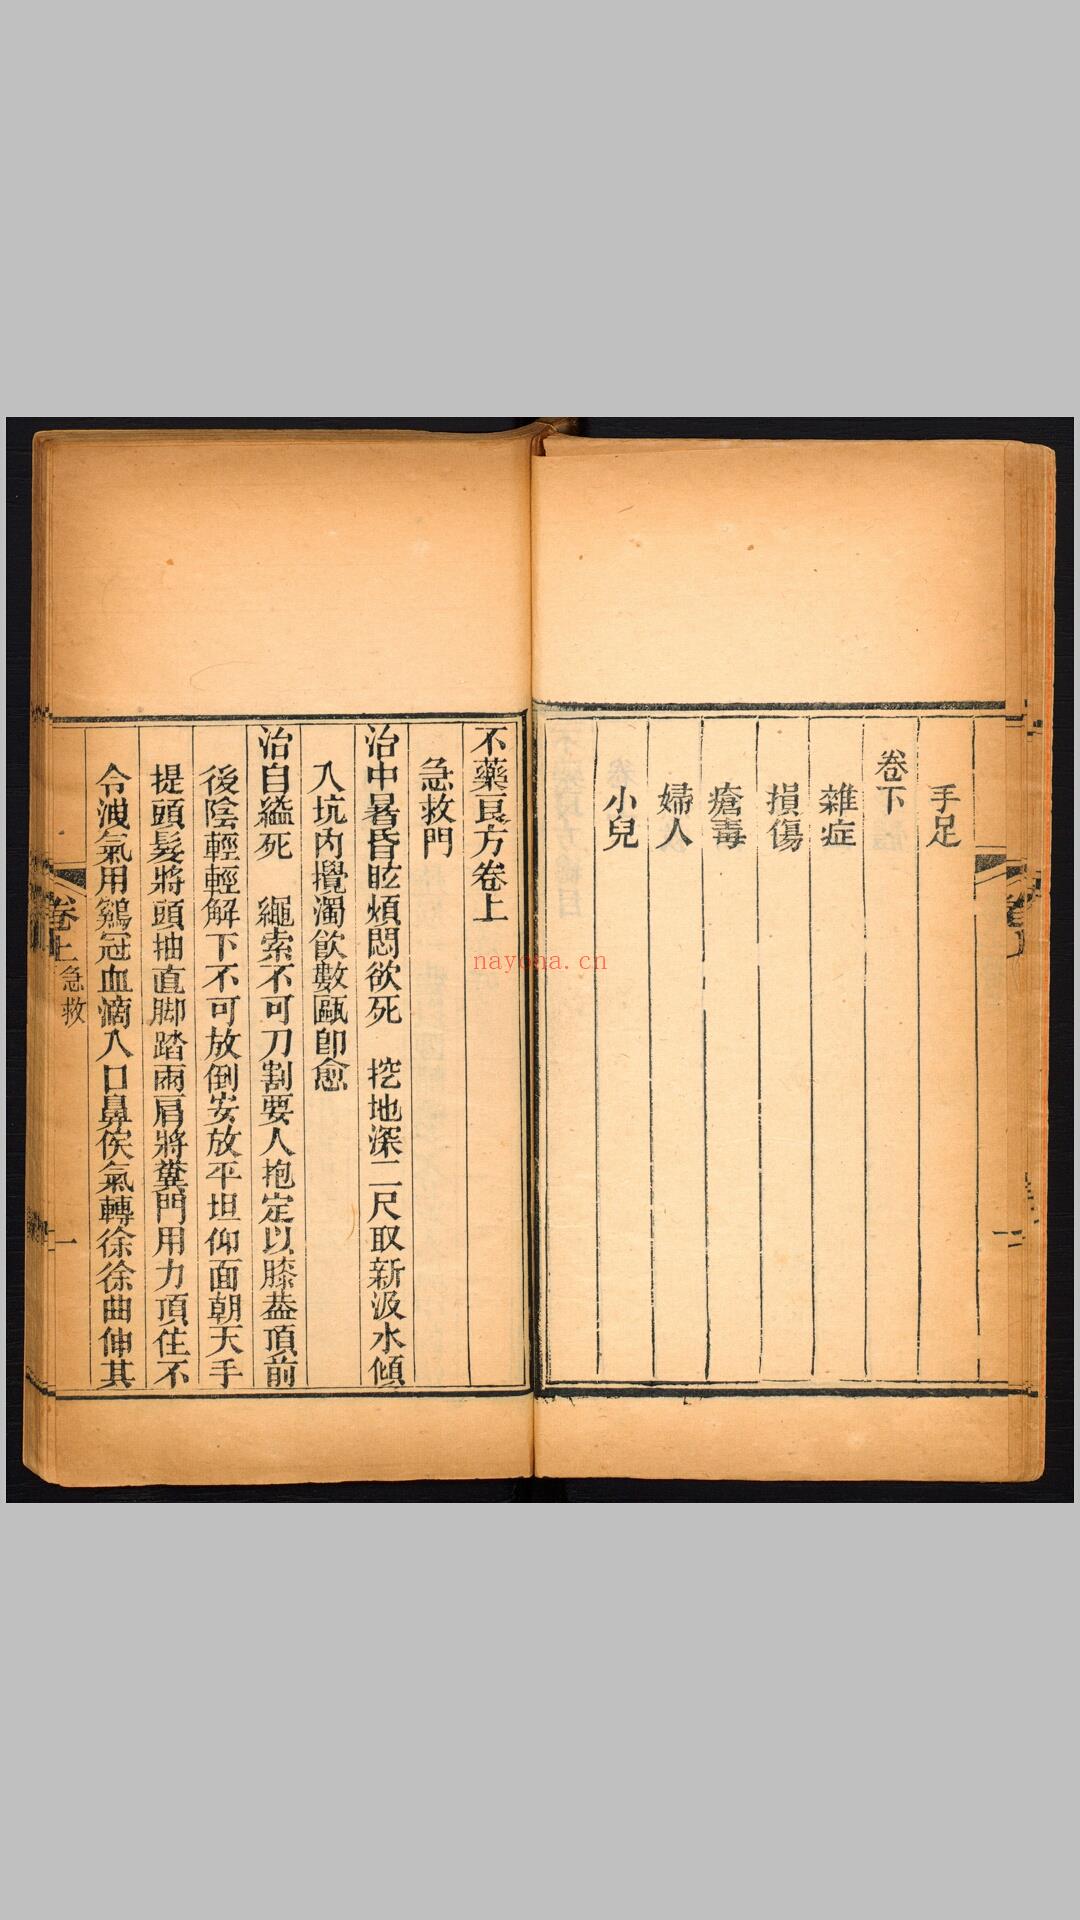 手足
卷下
雜症
損傷
瘡毒
婦人
小兒
不藥良方卷上
急救門
治中暑昏眩煩悶欲死　挖地深二尺取新汲水傾
入坑內攪濁飲數甌卽愈
治自縊死　繩索不可刀割要人抱定以膝葢頂前
後陰輕輕解下不可放倒安放平坦仰面朝天手
提頭髮將頭抽直脚踏兩肩將糞門用力頂住不
令洩氣用鷄冠血滴入口鼻俟氣轉徐徐曲伸其
卷上
急救
一
nayona.cn